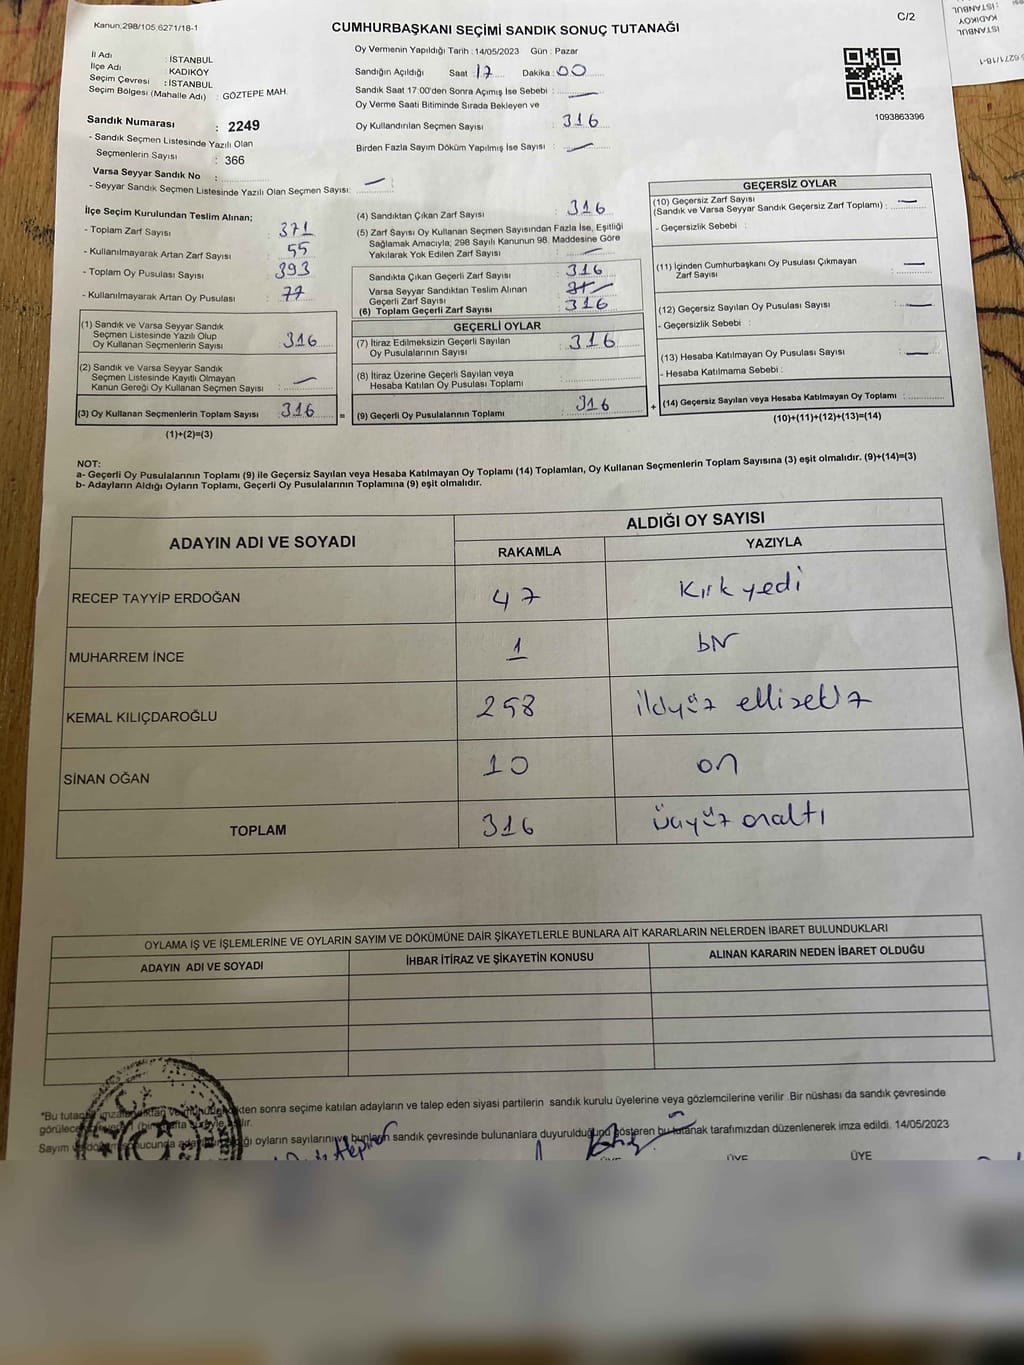 Kanun;298/105;6271/18-1
C/2
CUMHURBAŞKANI SEÇİMİ SANDIK SONUÇ TUTANAĞI
İl Adı : İSTANBUL
İlçe Adı : KADIKÖY
Seçim Çevresi : İSTANBUL
Seçim Bölgesi (Mahalle Adı) : GÖZTEPE MAH.
Sandık Numarası : 2249
- Sandık Seçmen Listesinde Yazılı Olan
Seçmenlerin Sayısı : 366
Varsa Seyyar Sandık No :
- Seyyar Sandık Seçmen Listesinde Yazılı Olan Seçmen Sayısı: —
Oy Vermenin Yapıldığı Tarih : 14/05/2023 Gün : Pazar
Sandığın Açıldığı Saat : 17 Dakika : 00
Sandık Saat 17:00'den Sonra Açımış İse Sebebi : —
Oy Verme Saati Bitiminde Sırada Bekleyen ve
Oy Kullandırılan Seçmen Sayısı : 316
Birden Fazla Sayım Döküm Yapılmış İse Sayısı : —
1093863396
İlçe Seçim Kurulundan Teslim Alınan;
- Toplam Zarf Sayısı : 371
- Kullanılmayarak Artan Zarf Sayısı : 55
- Toplam Oy Pusulası Sayısı : 393
- Kullanılmayarak Artan Oy Pusulası : 77
(1) Sandık ve Varsa Seyyar Sandık
Seçmen Listesinde Yazılı Olup
Oy Kullanan Seçmenlerin Sayısı : 316
(2) Sandık ve Varsa Seyyar Sandık
Seçmen Listesinde Kayıtlı Olmayan
Kanun Gereği Oy Kullanan Seçmen Sayısı : —
(3) Oy Kullanan Seçmenlerin Toplam Sayısı : 316
(1)+(2)=(3)
(4) Sandıktan Çıkan Zarf Sayısı : 316
(5) Zarf Sayısı Oy Kullanan Seçmen Sayısından Fazla İse, Eşitliği
Sağlamak Amacıyla; 298 Sayılı Kanunun 98. Maddesine Göre
Yakılarak Yok Edilen Zarf Sayısı : —
Sandıkta Çıkan Geçerli Zarf Sayısı : 316
Varsa Seyyar Sandıktan Teslim Alınan
Geçerli Zarf Sayısı : —
(6) Toplam Geçerli Zarf Sayısı : 316
GEÇERLİ OYLAR
(7) İtiraz Edilmeksizin Geçerli Sayılan
Oy Pusulalarının Sayısı : 316
(8) İtiraz Üzerine Geçerli Sayılan veya
Hesaba Katılan Oy Pusulası Toplamı :
= (9) Geçerli Oy Pusulalarının Toplamı : 316
GEÇERSİZ OYLAR
(10) Geçersiz Zarf Sayısı
(Sandık ve Varsa Seyyar Sandık Geçersiz Zarf Toplamı) : —
- Geçersizlik Sebebi :
(11) İçinden Cumhurbaşkanı Oy Pusulası Çıkmayan
Zarf Sayısı : —
(12) Geçersiz Sayılan Oy Pusulası Sayısı : —
- Geçersizlik Sebebi :
(13) Hesaba Katılmayan Oy Pusulası Sayısı : —
- Hesaba Katılmama Sebebi :
+ (14) Geçersiz Sayılan veya Hesaba Katılmayan Oy Toplamı :
(10)+(11)+(12)+(13)=(14)
NOT:
a- Geçerli Oy Pusulalarının Toplamı (9) ile Geçersiz Sayılan veya Hesaba Katılmayan Oy Toplamı (14) Toplamları, Oy Kullanan Seçmenlerin Toplam Sayısına (3) eşit olmalıdır. (9)+(14)=(3)
b- Adayların Aldığı Oyların Toplamı, Geçerli Oy Pusulalarının Toplamına (9) eşit olmalıdır.
ADAYIN ADI VE SOYADI
ALDIĞI OY SAYISI
RAKAMLA YAZIYLA
RECEP TAYYİP ERDOĞAN 47 Kırk yedi
MUHARREM İNCE 1 bir
KEMAL KILIÇDAROĞLU 258 ikiyüz ellisekiz
SİNAN OĞAN 10 on
TOPLAM 316 üçyüz onaltı
OYLAMA İŞ VE İŞLEMLERİNE VE OYLARIN SAYIM VE DÖKÜMÜNE DAİR ŞİKAYETLERLE BUNLARA AİT KARARLARIN NELERDEN İBARET BULUNDUKLARI
ADAYIN ADI VE SOYADI İHBAR İTİRAZ VE ŞİKAYETİN KONUSU ALINAN KARARIN NEDEN İBARET OLDUĞU
*Bu sonra seçime katılan adayların ve talep eden siyasi partilerin sandık kurulu üyelerine veya gözlemcilerine verilir .Bir nüshası da sandık çevresinde
oyların sayılarını ve bunların sandık çevresinde bulunanlara duyurulduğunu gösteren bu tutanak tarafımızdan düzenlenerek imza edildi. 14/05/2023
ÜYE ÜYE
İSTANBUL
KADIKÖY
İSTANBUL
6271/18-1